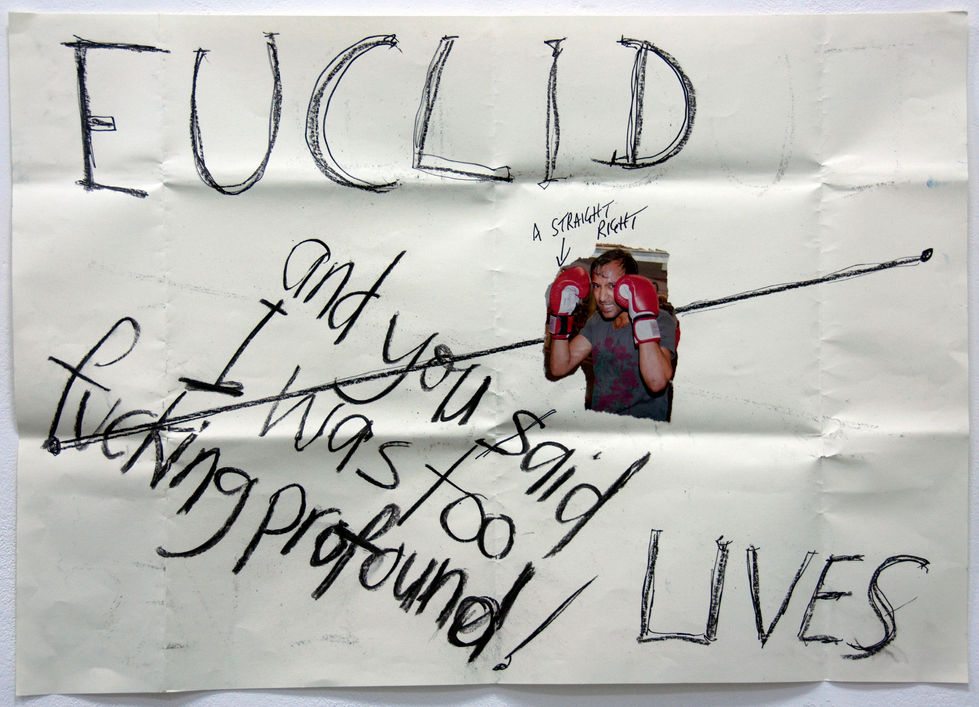 EUCLID
A STRAIGHT
RIGHT
and you said
I was too
fucking profound!
LIVES